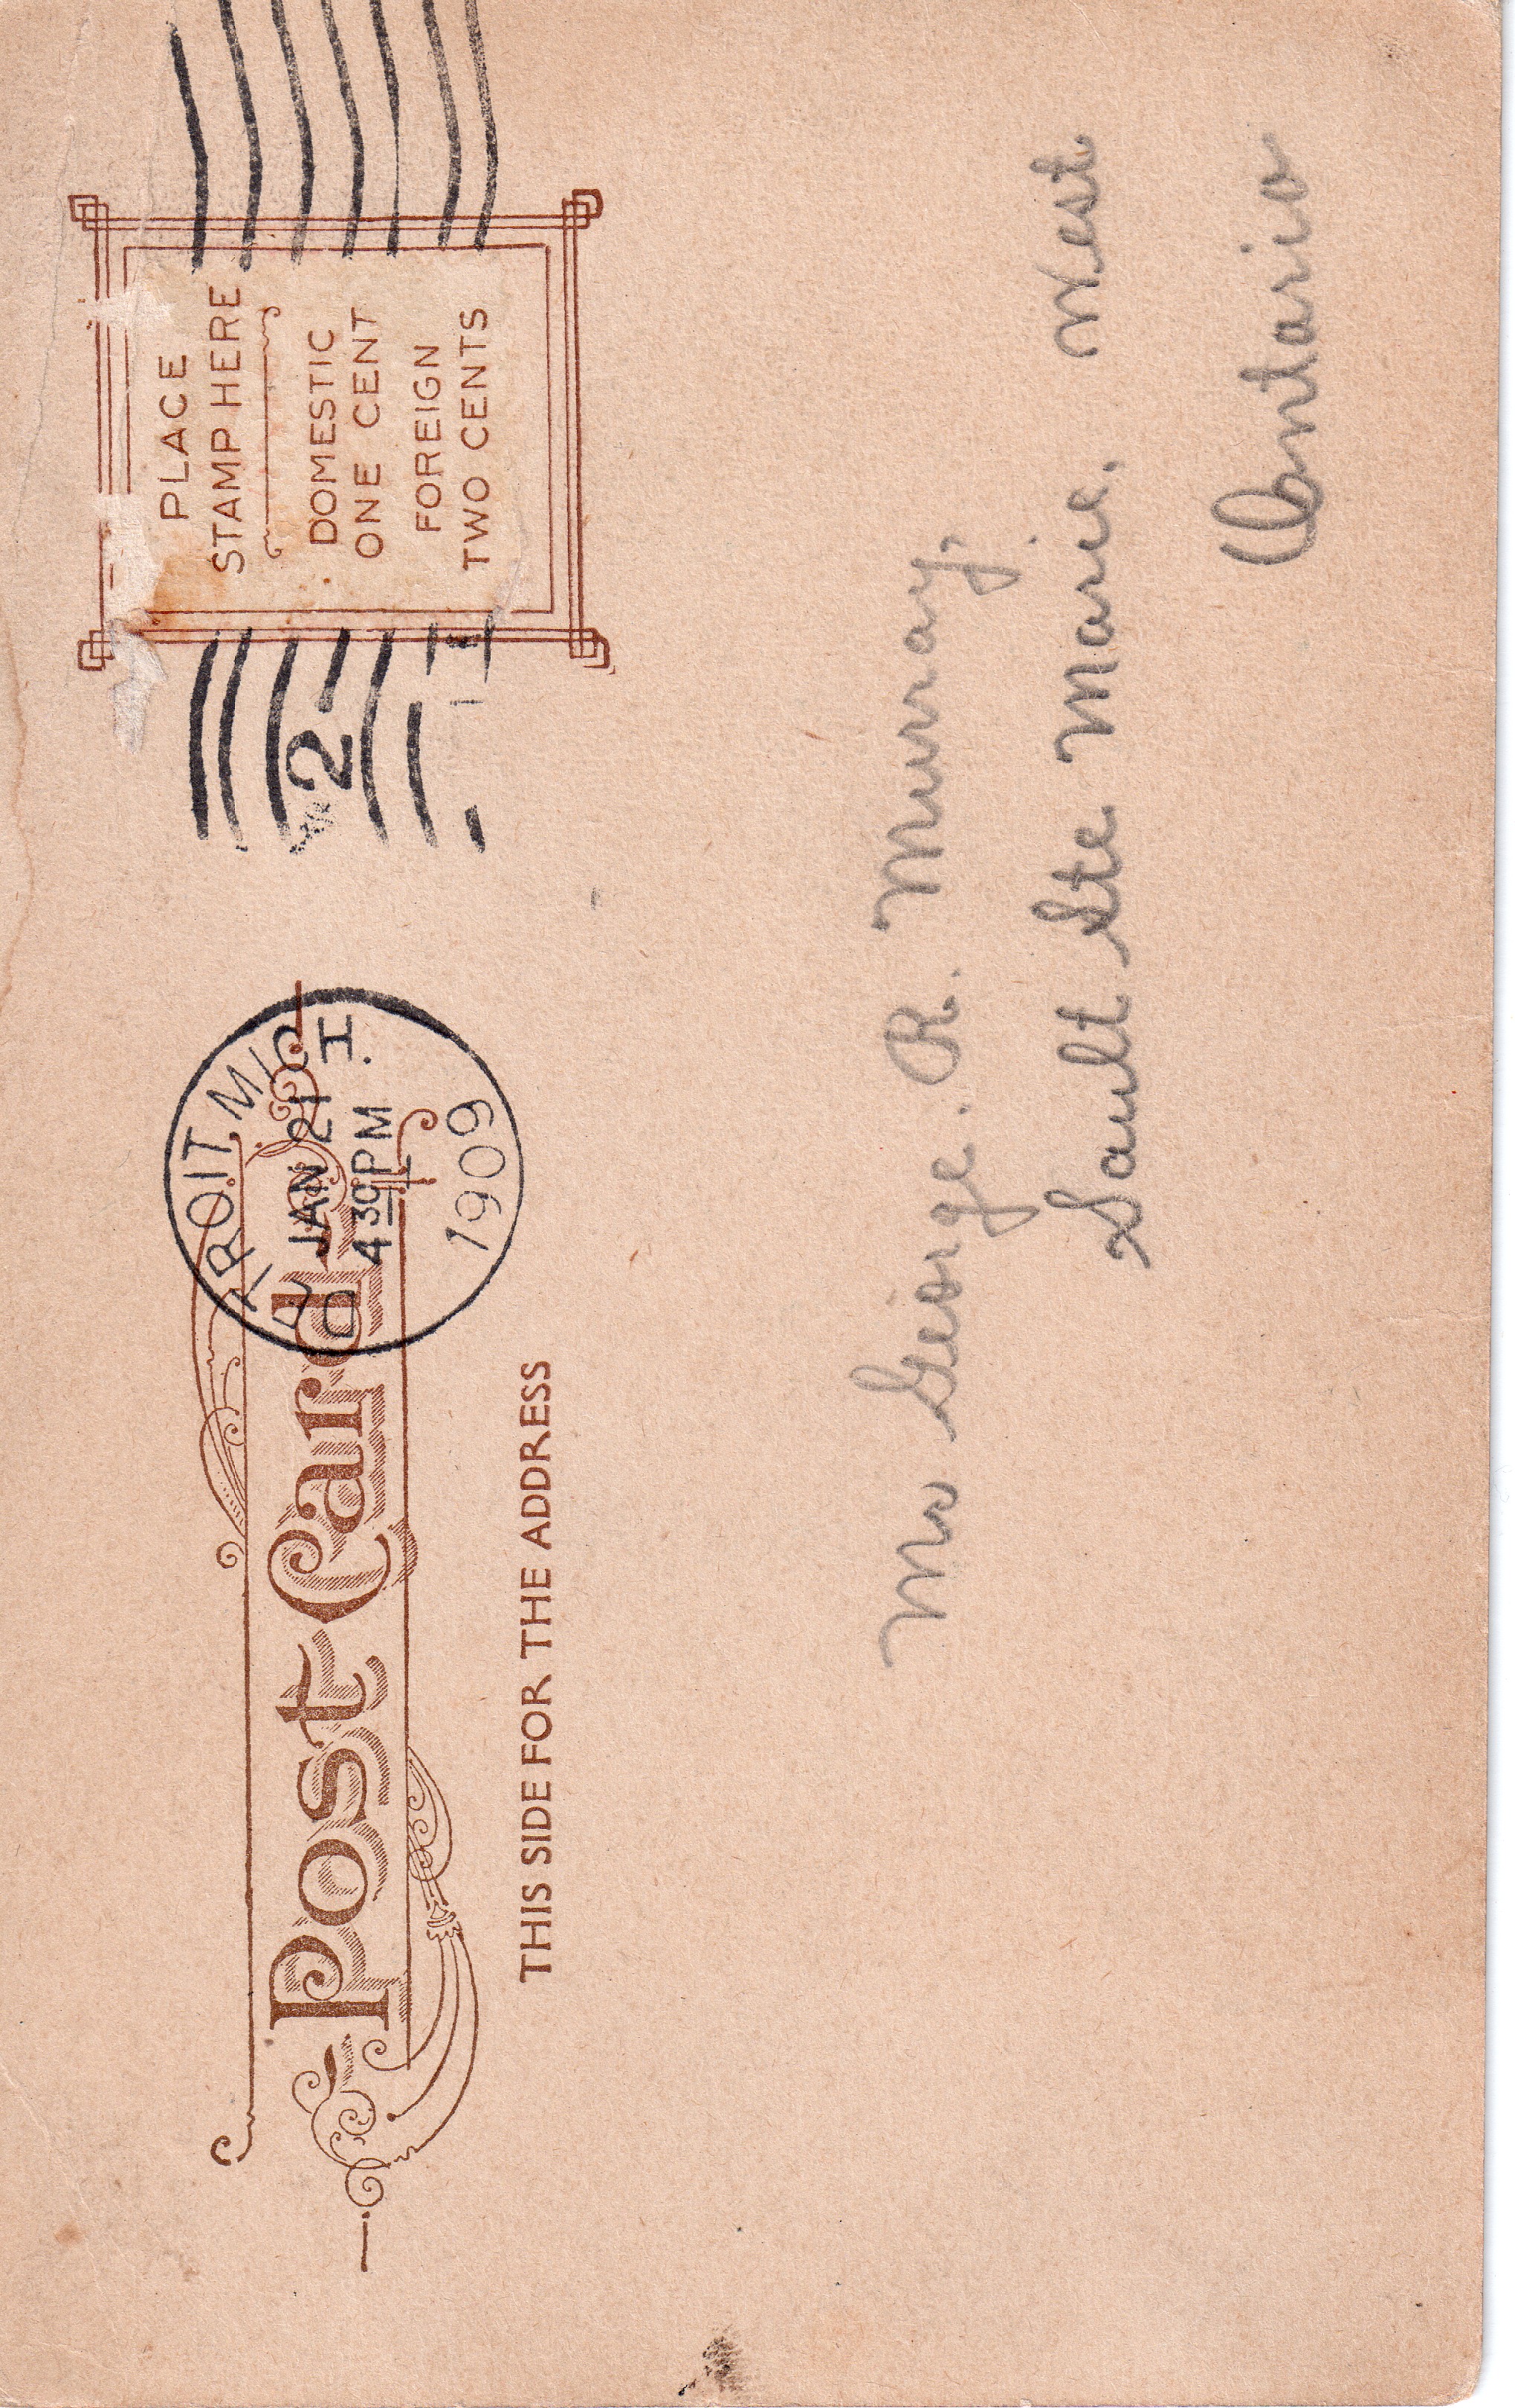 Post Card
THIS SIDE FOR THE ADDRESS
DETROIT, MICH.
JAN 21
4 30 PM
1909
2
PLACE
STAMP HERE
DOMESTIC
ONE CENT
FOREIGN
TWO CENTS
Mr George. R. Murray,
Sault Ste Marie. West
Ontario